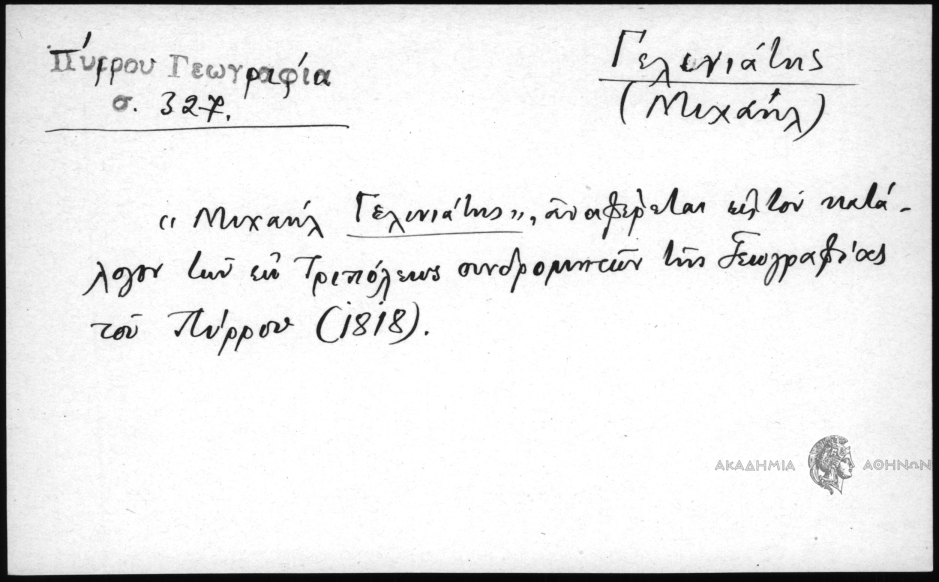 Πύρρου Γεωγραφία
σ. 327.
Γελενιάτης
(Μιχαήλ)
"Μιχαήλ Γελενιάτης", ἀναφέρεται εἰς τὸν κατά-
λογον τῶν ἐκ Τριπόλεως συνδρομητῶν τῆς Γεωγραφίας
τοῦ Πύρρου (1818).
ΑΚΑΔΗΜΙΑ ΑΘΗΝΩΝ